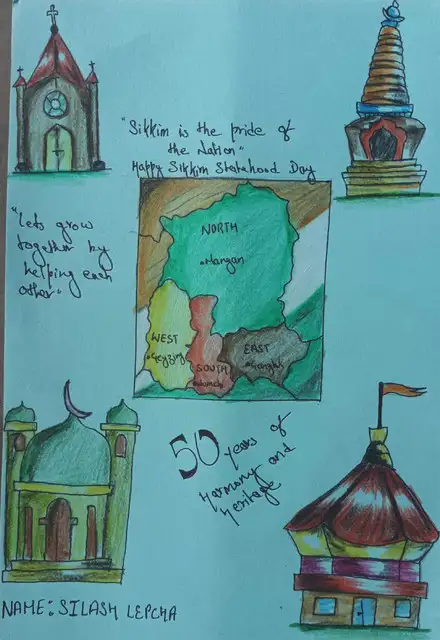 "Sikkim is the pride of
the Nation"
Happy Sikkim Statehood Day
"Lets grow
together by
helping each
other"
NORTH
Mangan
WEST
Geyzing
SOUTH
Namchi
EAST
Gangtok
50 years of
Harmony and
heritage
NAME: SILASH LEPCHA